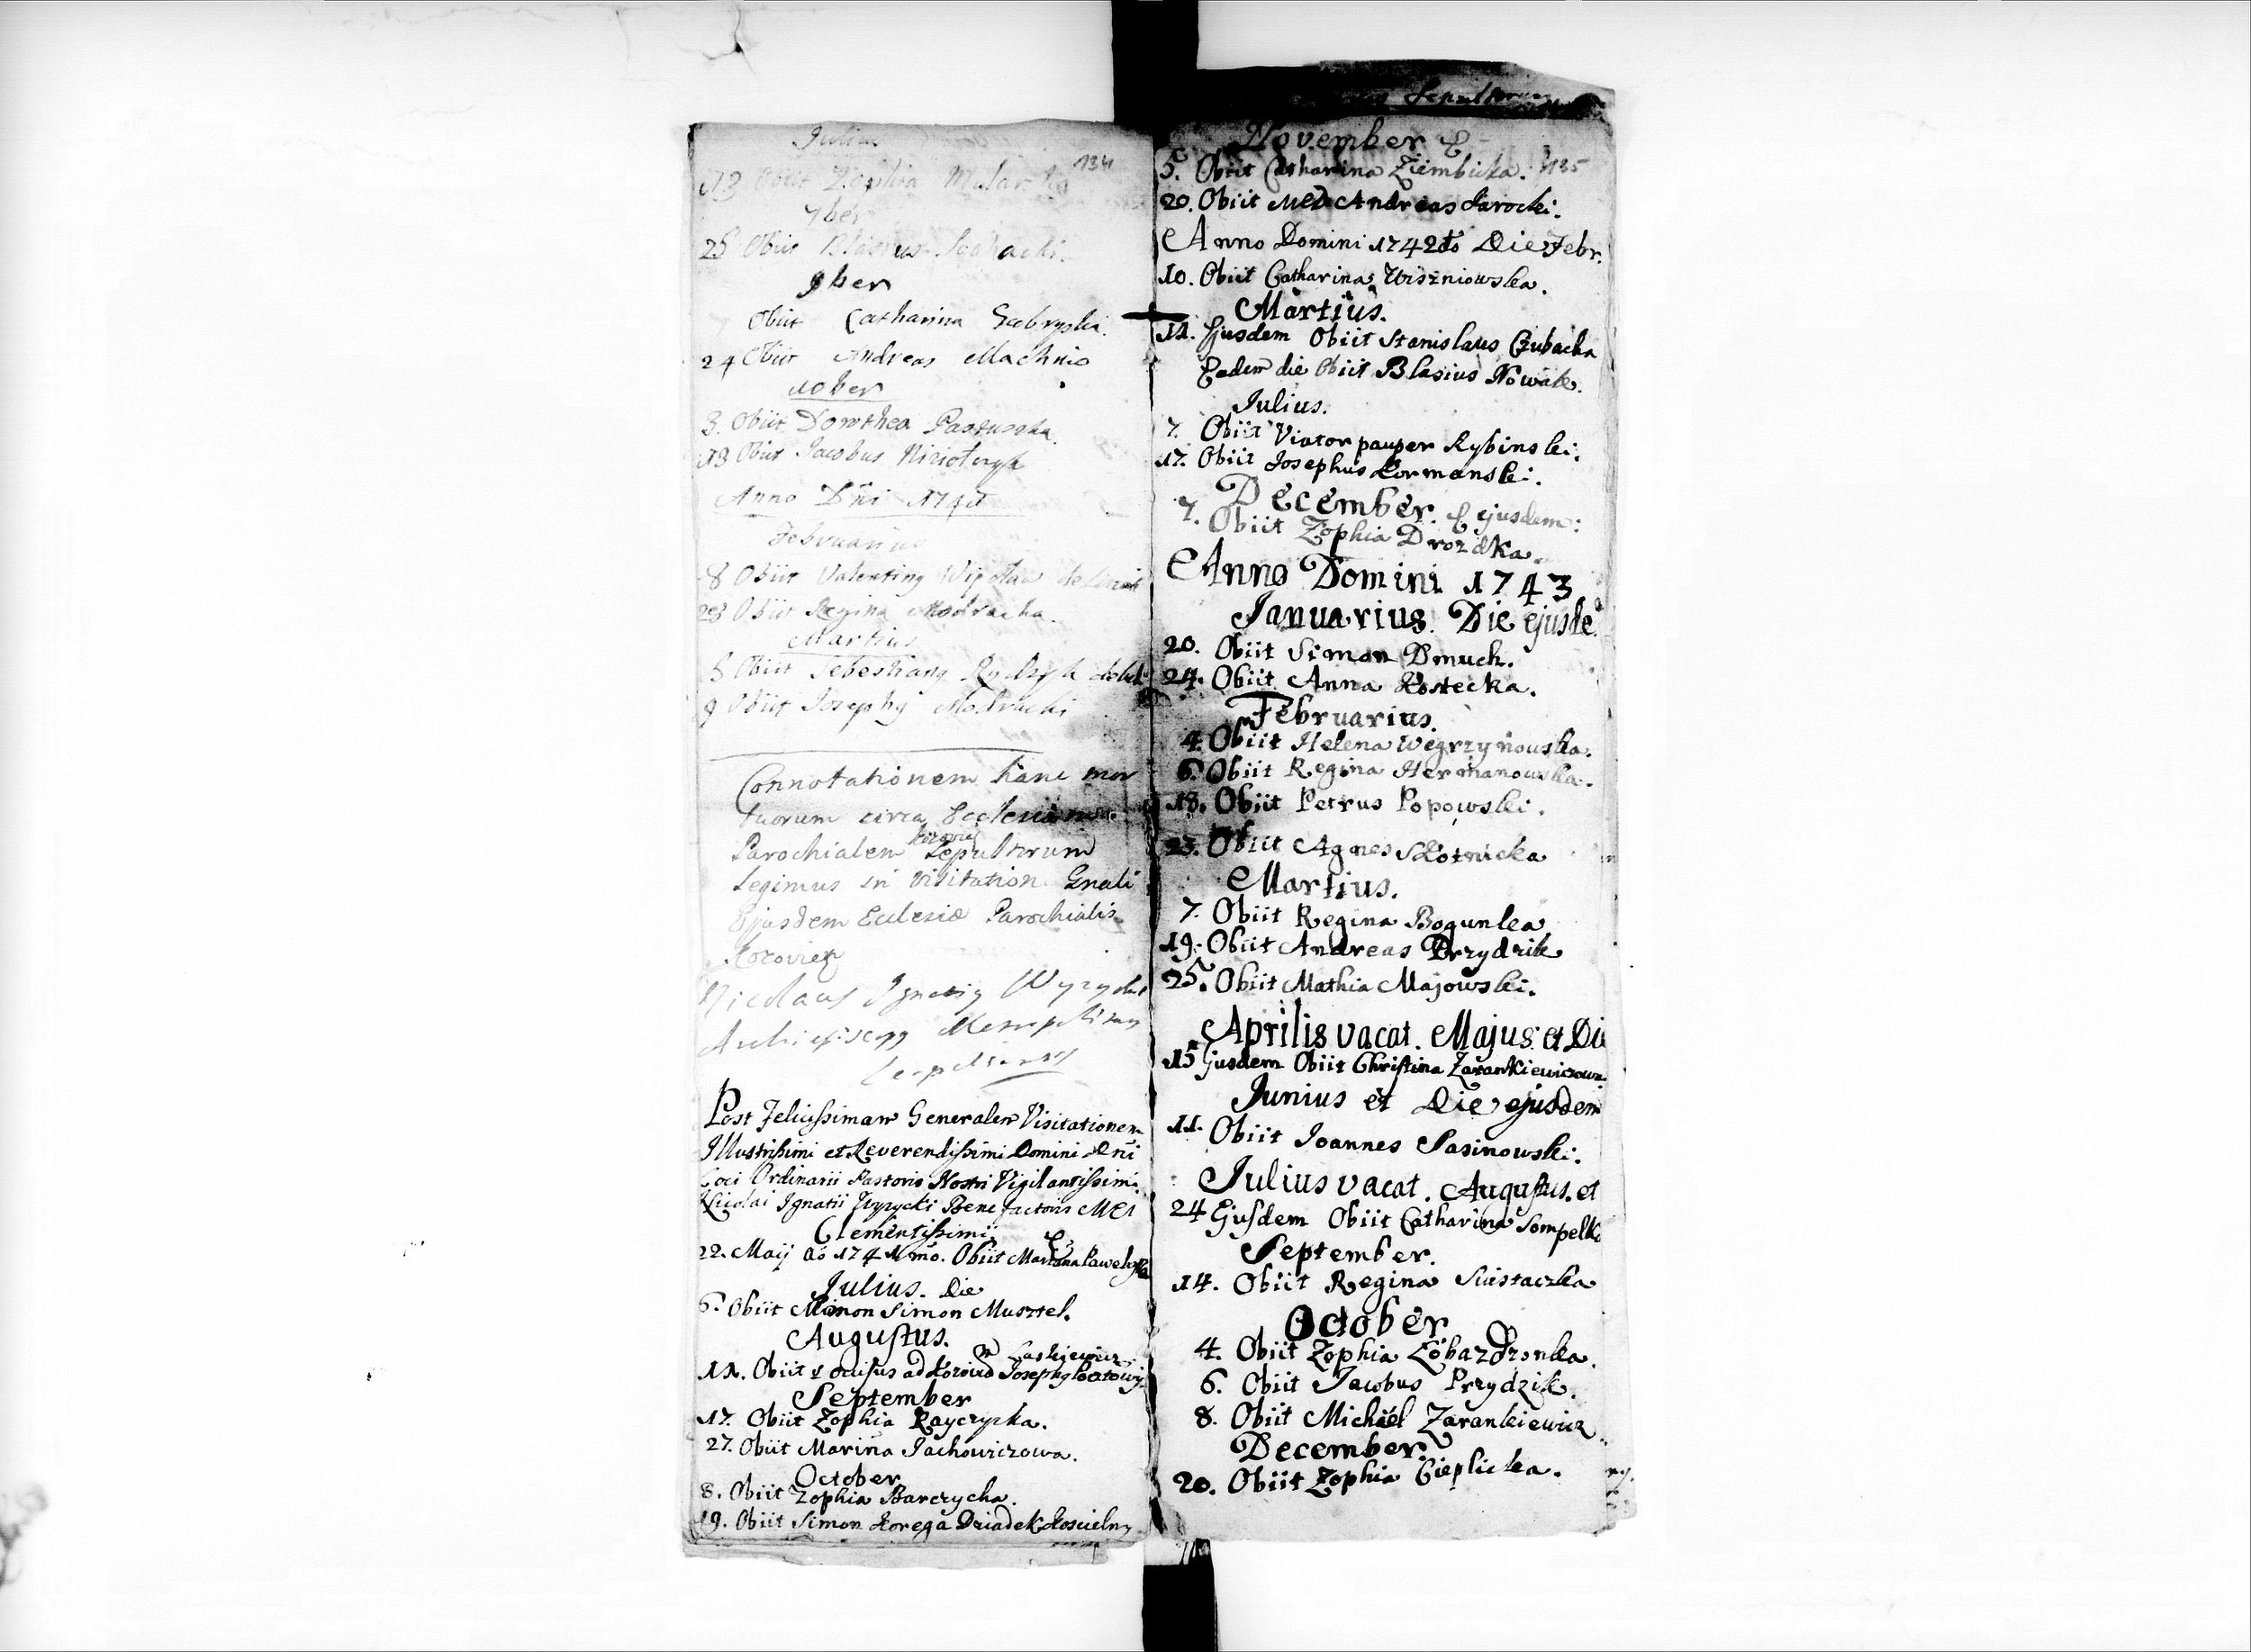 Julius
134
13 Obiit Zophia
7ber
25 Obiit Blasius
9ber
Obiit Catharina
24 Obiit Andreas Machnio
10ber
3. Obiit Dorothea Pastuszka
13 Obiit Jacobus
Anno Dni 1741
Februarius
8 Obiit Valenting
28 Obiit Regina Modracka.
Martius
8 Obiit Sebestiang
9 Obiit Josephy Modracki
Connotationem hanc mor
tuorum circa Ecclesiam
Parochialem Sepultorum
Legimus in Visitation Gnali
Ejusdem Ecclesiæ Parochialis
Nicolaus Ignatiy Wyzycki
Archiepiscopy Metropolitany
Leopoliensis
Post Felicissimam Generalem Visitationem
Illustrissimi et Reverendissimi Domini Dni
Loci Ordinarii Pastoris Nostri Vigilantissimi
Nicolai Ignatii Wyzycki Benefactoris Mei
Clementissimi.
22. Maij ao 1741mo. Obiit Marianna
Julius. Die
6. Obiit Simon Musztel.
Augustus.
11. Obiit occisus ad Josephy
September
17. Obiit Zophia Rayczycka.
27. Obiit Marina Jachowiczowa.
October
8. Obiit Zophia Barczycha.
19. Obiit Simon Korega Dziadek Koscielny
November
5. Obiit Catharina Ziembicka. 135
20. Obiit Andreas Jarocki.
Anno Domini 1742do Die Febr.
10. Obiit Catharina Wiszniowska.
Martius.
11. Ejusdem Obiit Stanislaus Czubacka
Eadem die Obiit Blasius Nowak.
Julius.
7. Obiit Viator pauper Rybinski.
17. Obiit Josephus Kormanski.
December. ejusdem:
7. Obiit Zophia Drozdka
Anno Domini 1743
Januarius. Die ejusde
20. Obiit Simon Dmuch.
24. Obiit Anna Kostecka.
Februarius.
4. Obiit Helena Węgrzynowska.
6. Obiit Regina Hermanowska.
18. Obiit Petrus Popowski.
23. Obiit Agnes Słotnicka
Martius.
7. Obiit Regina Bogunka
19. Obiit Andreas Przydzik
25. Obiit Mathia Majowski.
Aprilis vacat. Majus et Die
15 Ejusdem Obiit Christina Zarankiewiczowa
Junius et Die ejusdem
11. Obiit Joannes Sasinowski.
Julius vacat. Augustus. et
24 Ejusdem Obiit Catharina Sompelka
September.
14. Obiit Regina
October
4. Obiit Zophia
6. Obiit Jacobus Przydzik.
8. Obiit Michäel Zarankiewicz
December.
20. Obiit Zophia Cieplicka.